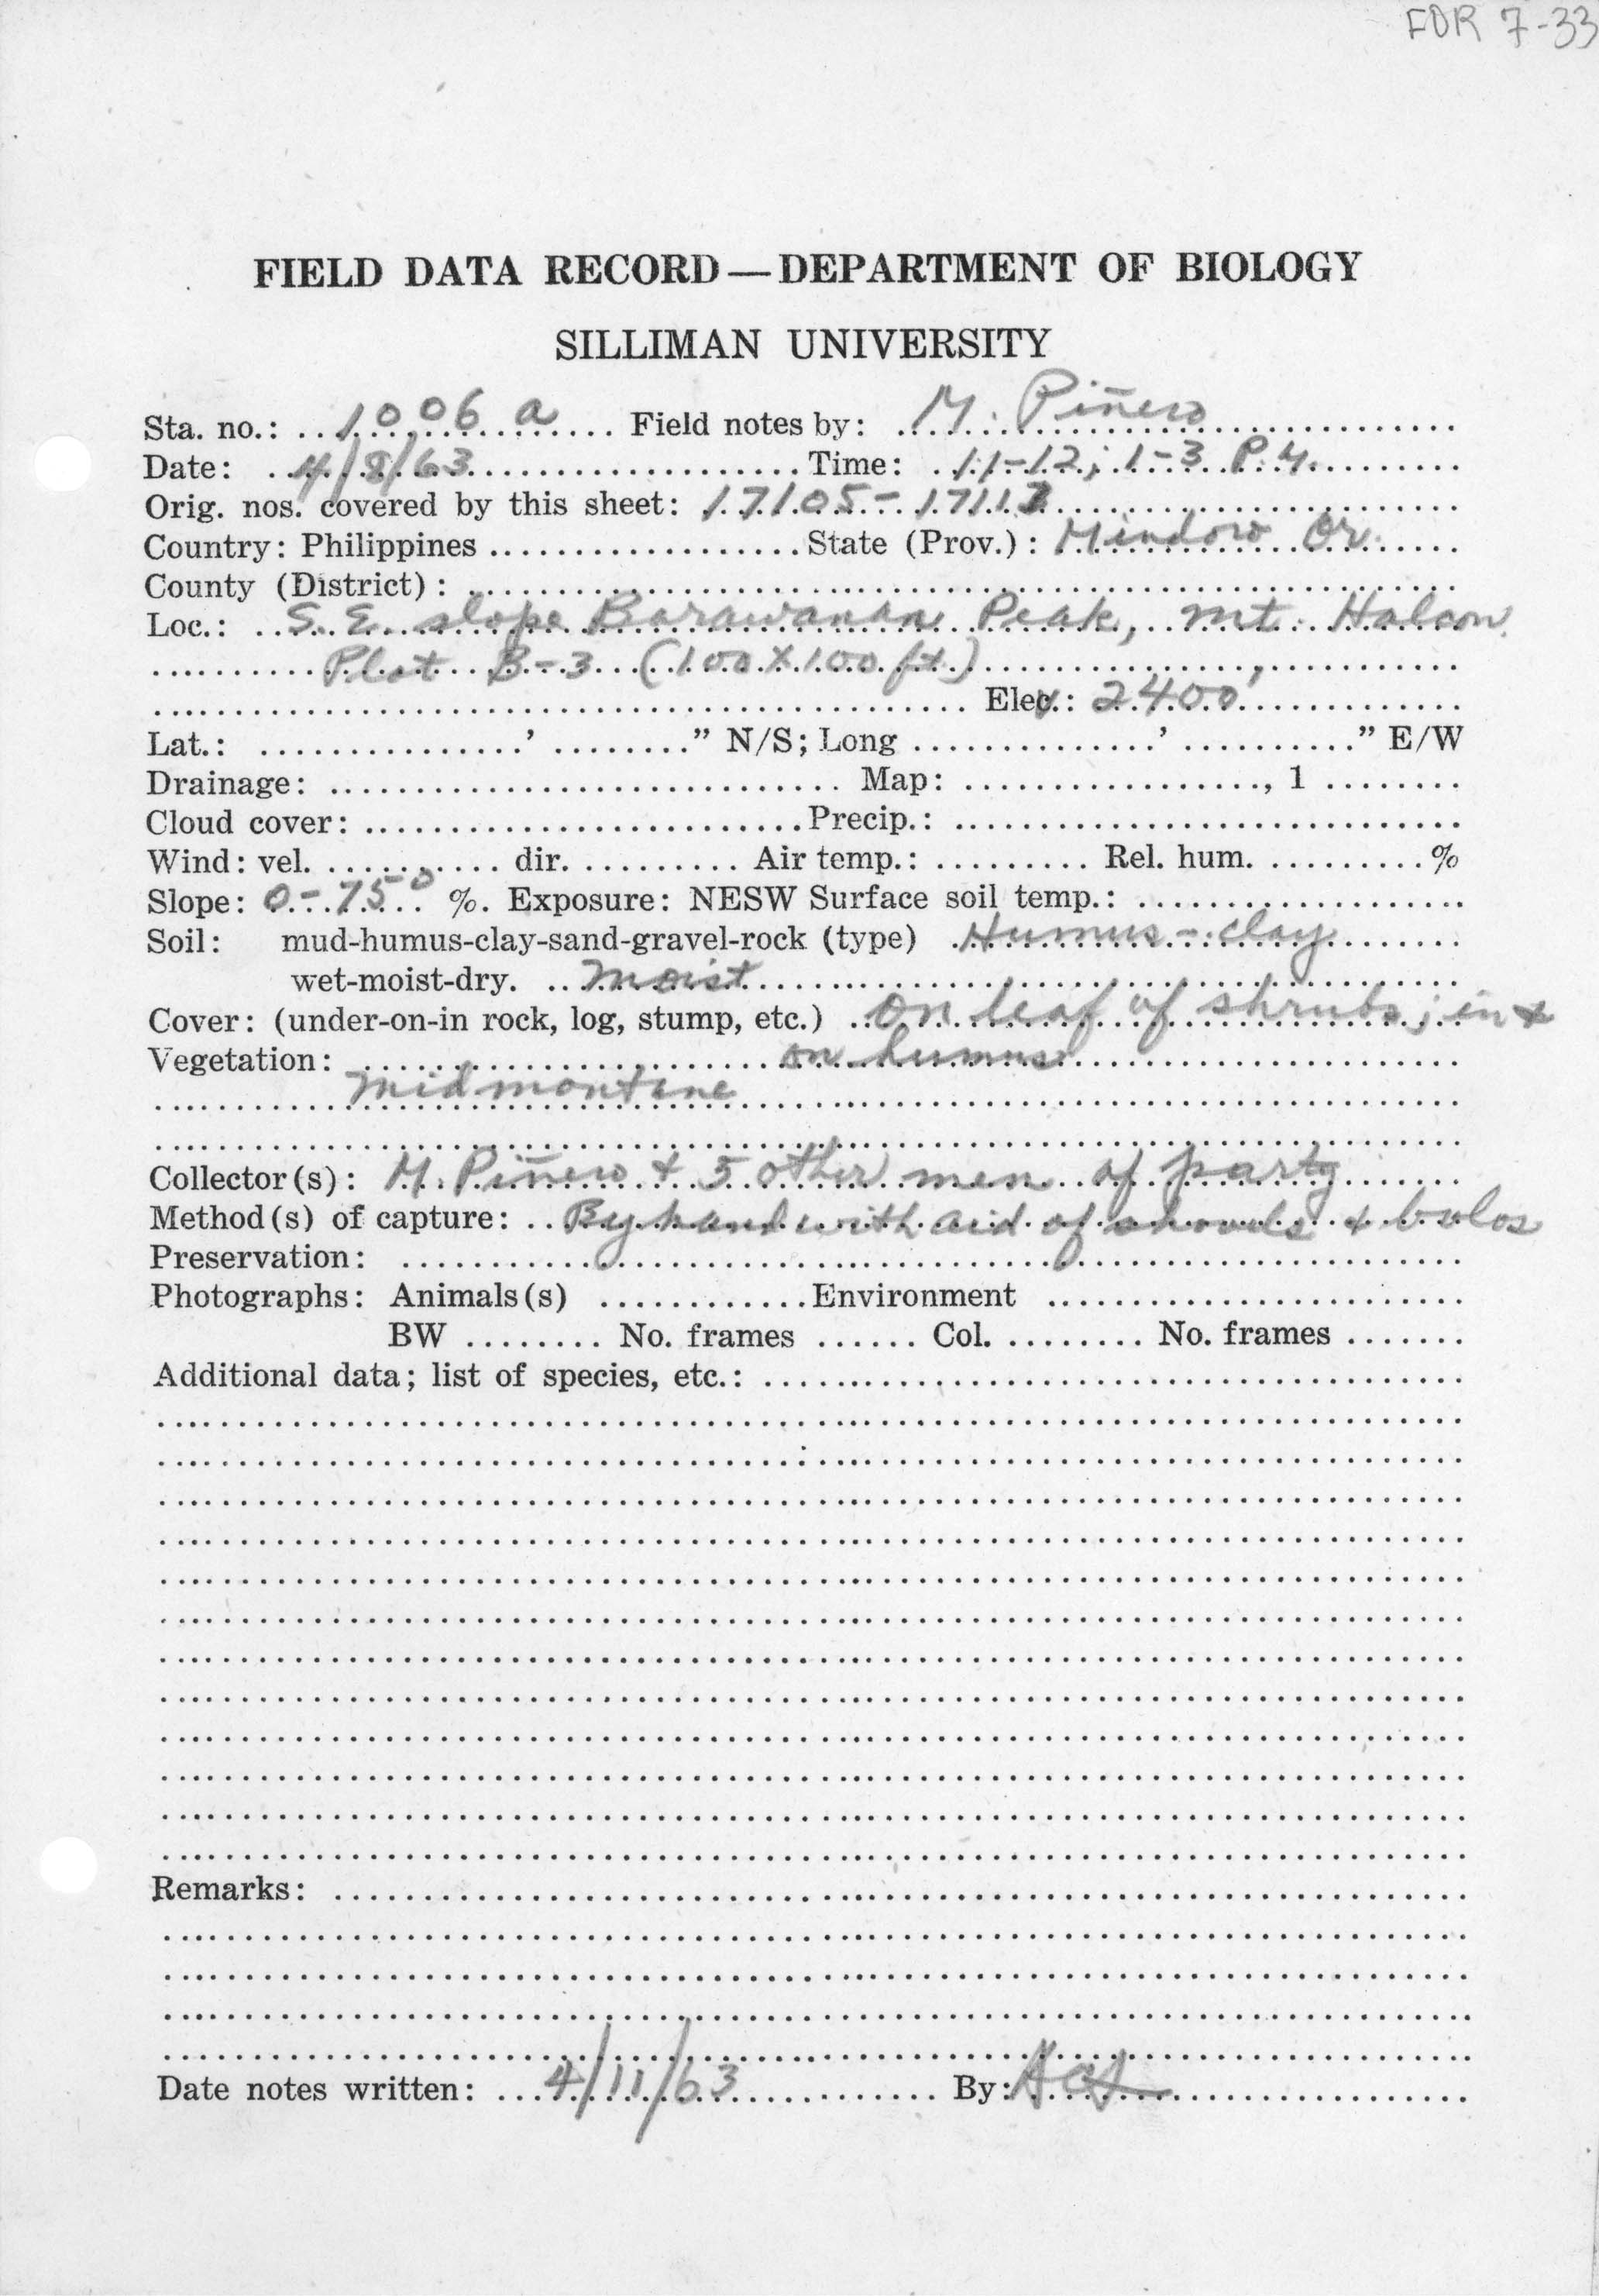 FDR 7-33
FIELD DATA RECORD — DEPARTMENT OF BIOLOGY
SILLIMAN UNIVERSITY
Sta. no.: 1006 a Field notes by: M. Piñero
Date: 4/8/63 Time: 11-12; 1-3 P.M.
Orig. nos. covered by this sheet: 17105-17113
Country: Philippines State (Prov.): Mindoro Or.
County (District):
Loc.: S.E. slope Barawanan Peak, Mt. Halcon
Plot B-3 (100 X 100 ft.)
Elev.: 2400'
Lat.: ' " N/S; Long ' " E/W
Drainage: Map: , 1
Cloud cover: Precip.:
Wind: vel. dir. Air temp.: Rel. hum. %
Slope: 0-75° %. Exposure: NESW Surface soil temp.:
Soil: mud-humus-clay-sand-gravel-rock (type) Humus-clay
wet-moist-dry. moist
Cover: (under-on-in rock, log, stump, etc.) On leaf of shrubs; in &
Vegetation: on humus
midmontane
Collector(s): M. Piñero + 5 other men of party
Method(s) of capture: By hand with aid of shovels & bolos
Preservation:
Photographs: Animals(s) Environment
BW No. frames Col. No. frames
Additional data; list of species, etc.:
Remarks:
Date notes written: 4/11/63 By: